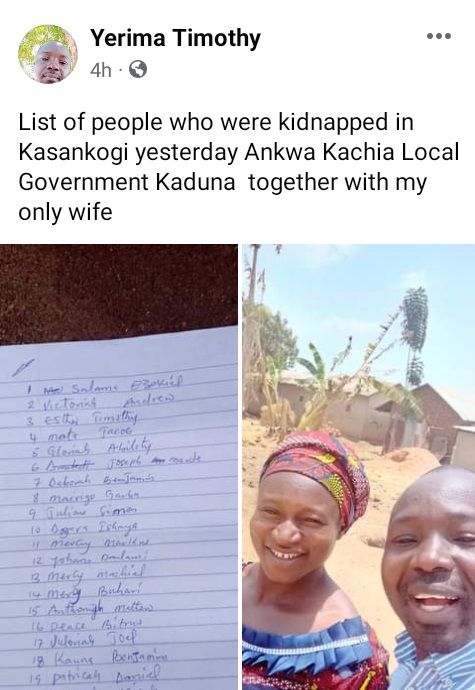 Yerima Timothy
4h
List of people who were kidnapped in
Kasankogi yesterday Ankwa Kachia Local
Government Kaduna together with my
only wife
1 Salama Ezekiel
2 Victoriah Andrew
3 Esther Timothy
4 Jacob
5 Gloriah Ability
6 Joseph
7 Deborah Benjamin
8 Garba
9 Julian Simon
10 Ishaya
11 Mercy
12
13 Mercy
14 Mercy Buhari
15 Anthonigh
16 Peace Bitrus
17 Joel
18 Benjamin
19 Patricah Daniel